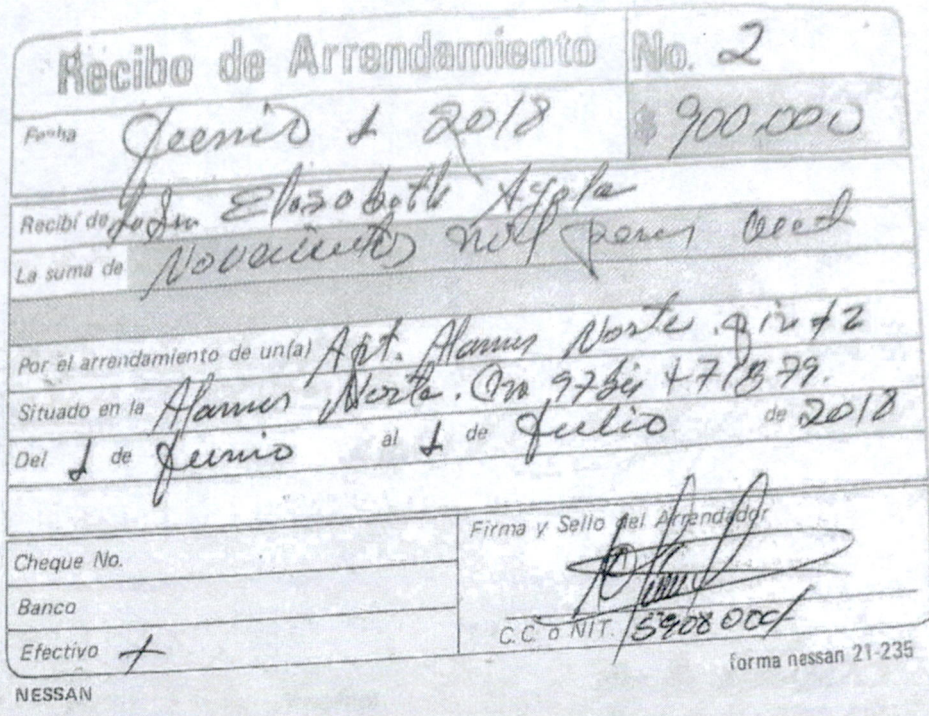 Recibo de Arrendamiento No. 2
Fecha Junio 1 2018 $ 900.000
Recibí de la Sra Elisabeth Ayala
La suma de Novecientos mil pesos
Por el arrendamiento de un(a) Apt. Alamos Norte. piso # 2
Situado en la Alamos Norte. Cra 97 bis # 71B 79.
Del 1 de Junio al 1 de Julio de 2018
Firma y Sello del Arrendador
Cheque No.
Banco
C.C. o NIT. 5908004
Efectivo +
forma nessan 21-235
NESSAN